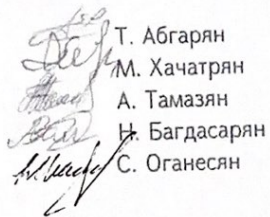 Т. Абгарян
М. Хачатрян
А. Тамазян
Н. Багдасарян
С. Оганесян